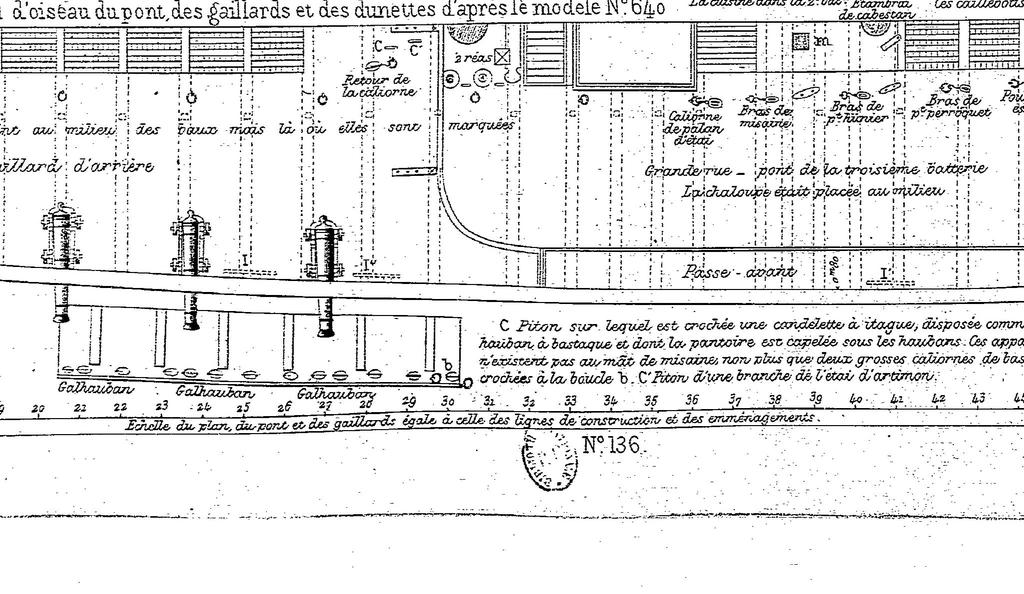 d'oiseau du pont, des gaillards et des dunettes d'après le modèle N.º 640
La cuisine dans la 2.
Etambrai
de cabestan
les caillebotis
C C'
2 réas
m
Retour de
la caliorne
au milieu des baux mais là où elles sont marquées
Caliorne
de palan
d'étai
Bras de
misaine
Bras de
p.t hunier
Bras de
p.t perroquet
gaillard d'arrière
Grande rue _ pont de la troisième batterie
La chaloupe était placée au milieu
I I' Passe-avant I
C Piton sur lequel est crochée une candelette à itague, disposée comm
hauban à bastaque et dont la pantoire est capelée sous les haubans. Ces appa
n'existent pas au mât de misaine, non plus que deux grosses caliornes de bas
crochées à la boucle b. C' Piton d'une branche de l'étai d'artimon.
b
Galhauban Galhauban Galhauban
20 21 22 23 24 25 26 27 28 29 30 31 32 33 34 35 36 37 38 39 40 41 42 43
Echelle du plan, du pont et des gaillards égale à celle des lignes de construction et des emménagements.
N.º 136.